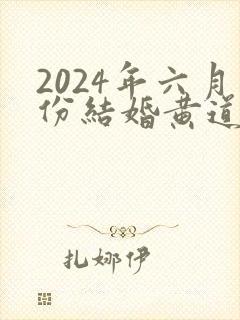 2024年六月
份結婚黄道
扎娜伊